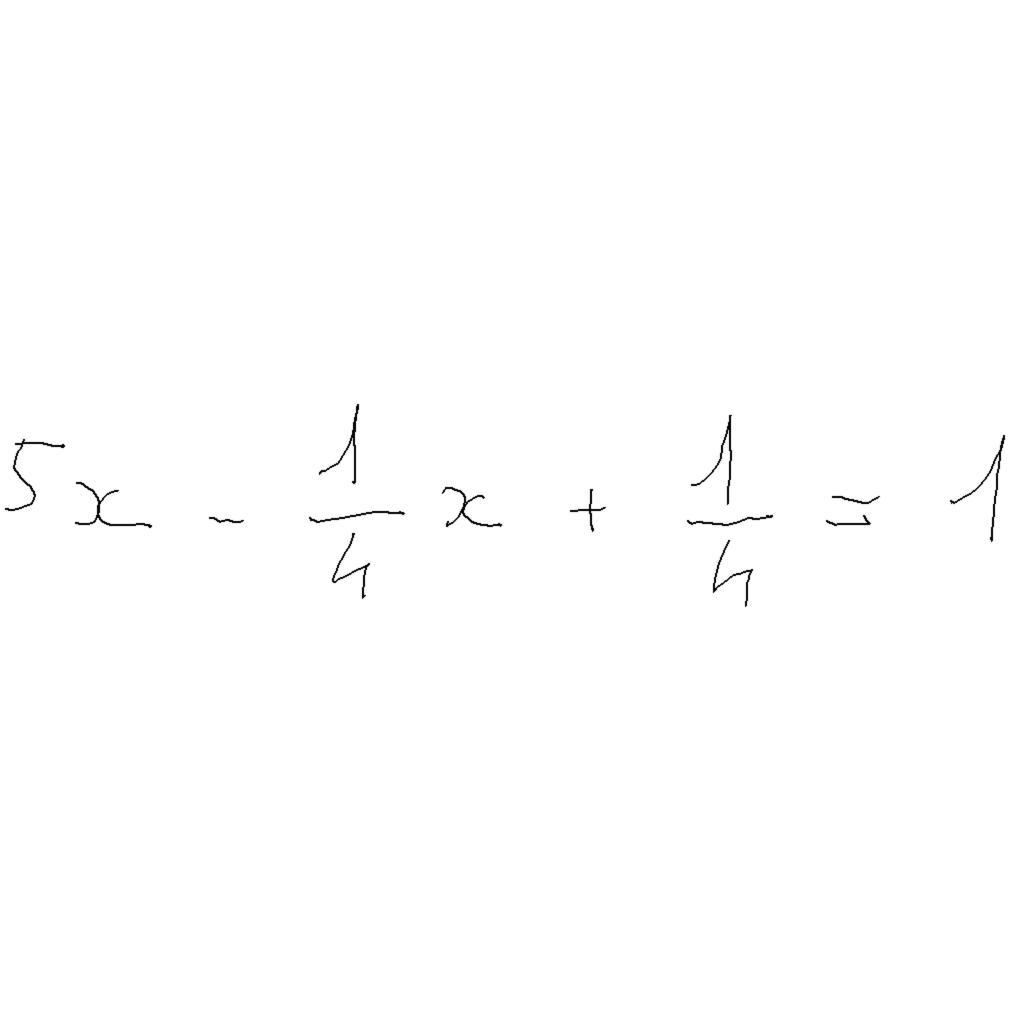 5x - \frac{1}{4}x + \frac{1}{4} = 1